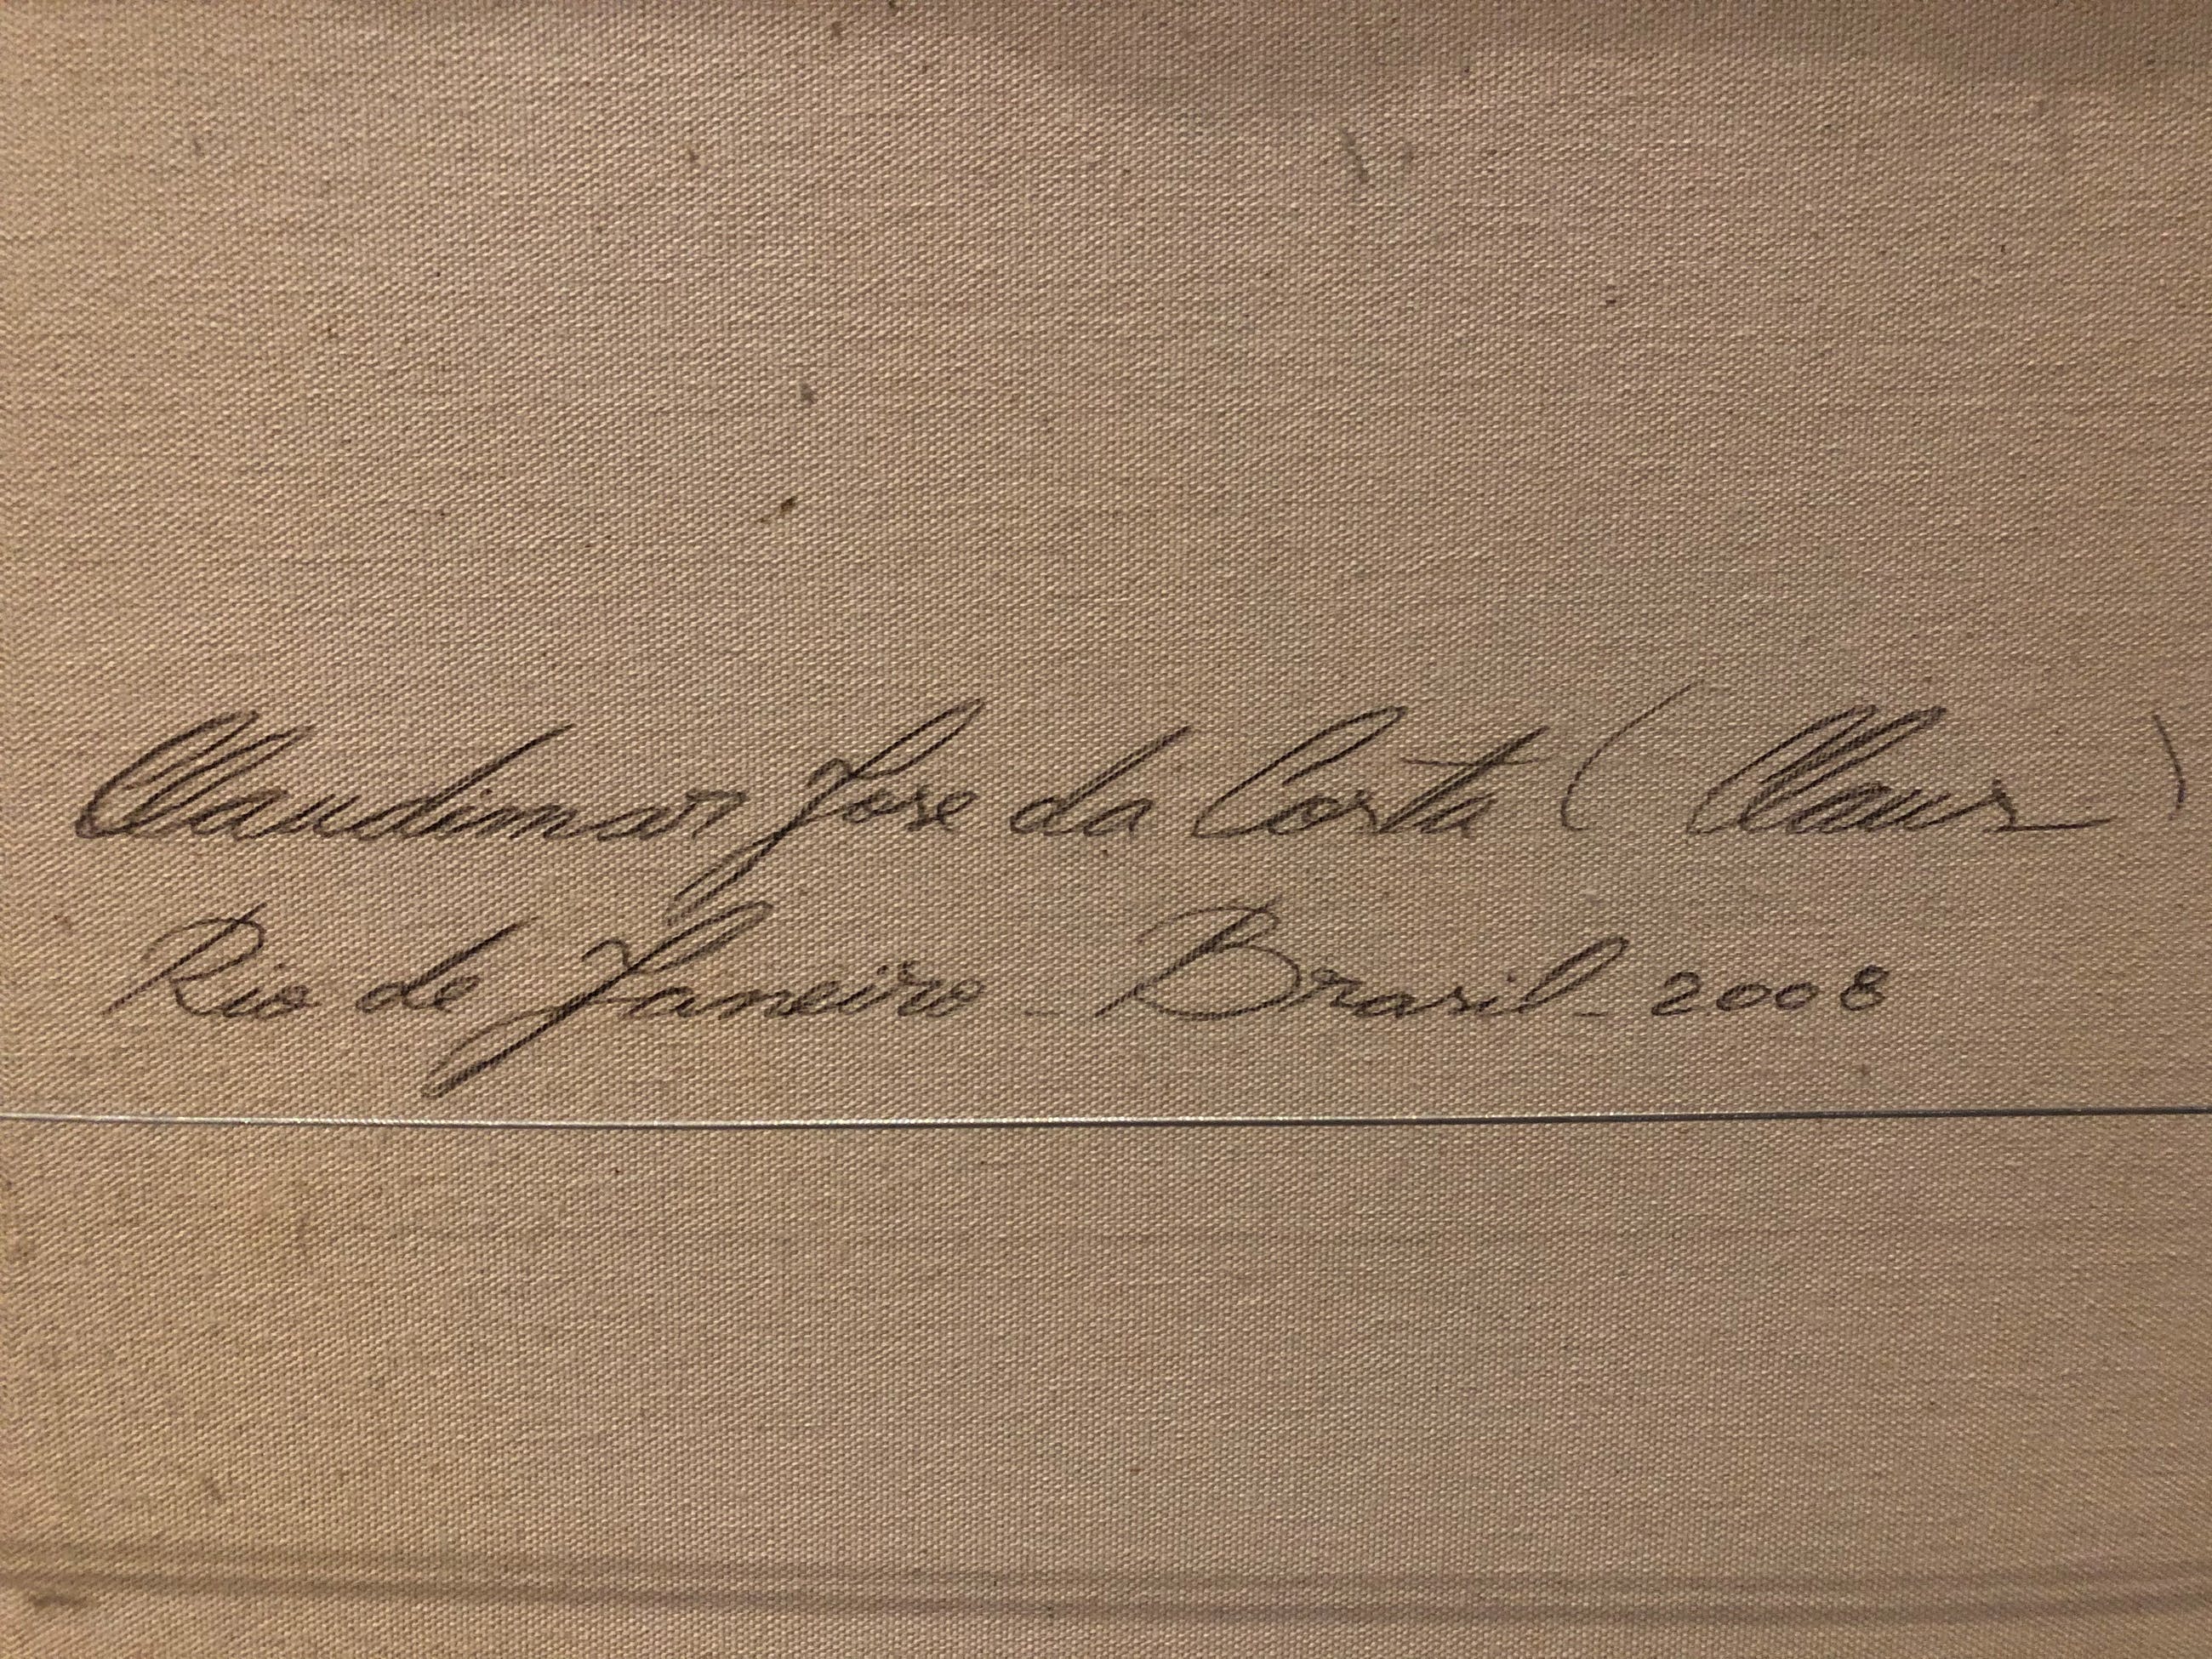 Claudimar Jose da Costa ( Claus )
Rio de Janeiro - Brasil - 2008